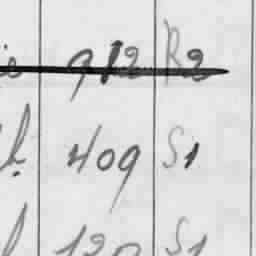 912 R2
409 S1
120 S1